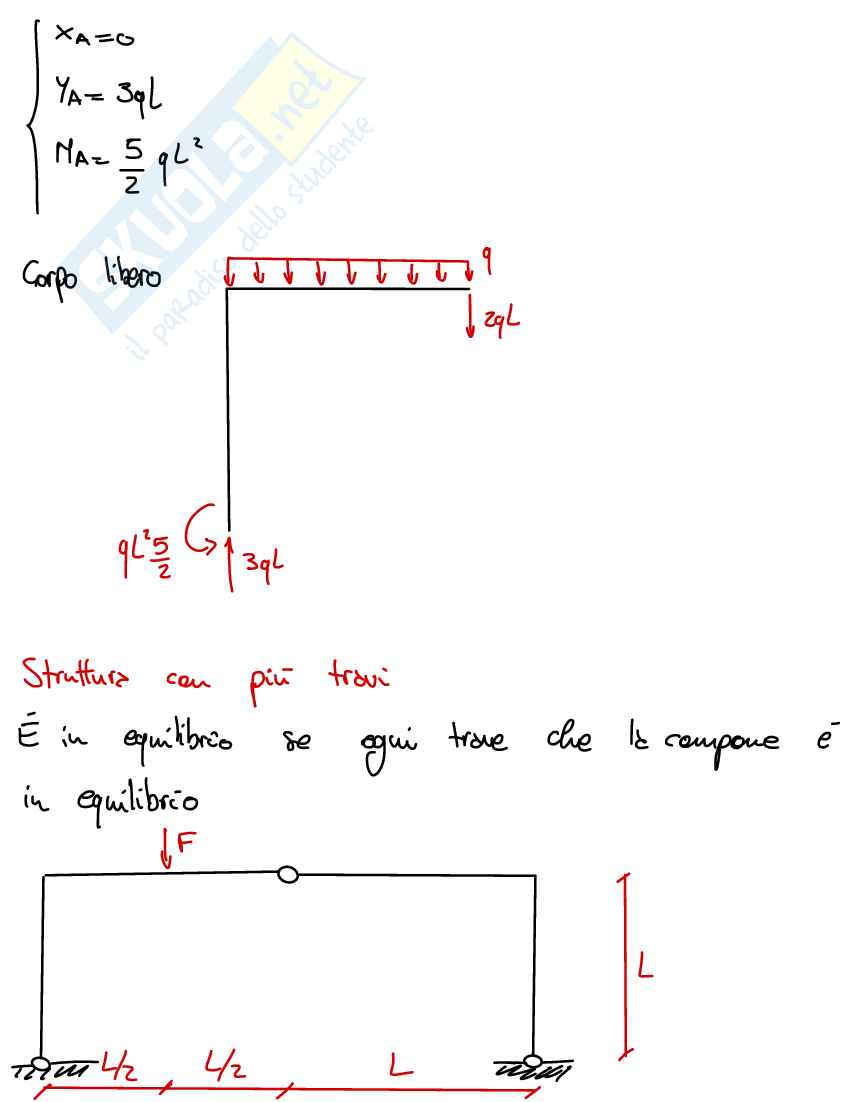 XA=0
YA= 3qL
MA= 5/2 qL²
SKUOLA.net
il paradiso dello studente
Corpo libero
q
2qL
qL² 5/2
3qL
Struttura con più travi
È in equilibrio se ogni trave che la compone è
in equilibrio
F
L
L/2 L/2 L